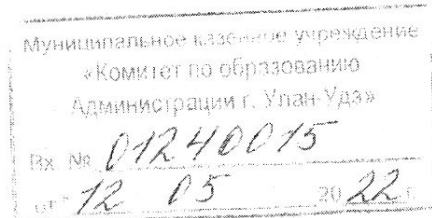 Муниципальное казенное учреждение
«Комитет по образованию
Администрации г. Улан-Удэ»
Вх. № 01240015
от "12 05 2022 г.